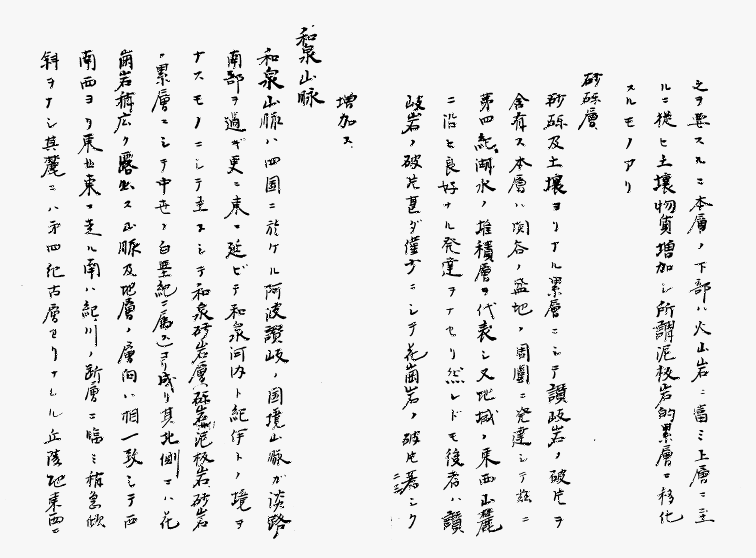 之ヲ要スルニ本層ノ下部ハ火山岩ニ富ミ上層ニ至
ルニ從ヒ土壤物質增加シ所謂泥板岩的累層ニ移化
スルモノアリ
砂礫層
砂礫及土壤ヨリナル累層ニシテ讃岐岩ノ破片ヲ
含有ス本層ハ関谷ノ盆地ノ周圍ニ発達シテ茲ニ
第四紀湖水ノ堆積層ヲ代表シ又地域ノ東西山麓
ニ沿ヒ良好ナル発達ヲナセリ然レドモ後者ハ讃
岐岩ノ破片甚ダ僅少ニシテ花崗岩ノ破片著シク
增加ス
和泉山脈
和泉山脈ハ四国ニ於ケル阿波讃岐ノ国境山脈ガ淡路
南部ヲ過ギ更ニ東ニ延ビテ和泉河内ト紀伊トノ境ヲ
ナスモノニシテ主トシテ和泉砂岩層礫岩泥板岩砂岩
ノ累層ニシテ中世ノ白堊紀ニ属スヨリ成リ其北側ニハ花
崗岩稍広ク露出ス山脈及地層ノ層向ハ相一致シテ西
南西ヨリ東北東ニ走ル南ハ紀川ノ断層ニ臨ミ稍急傾
斜ヲナシ其麓ニハ第四紀古層ヨリナレル丘陵地東西ニ